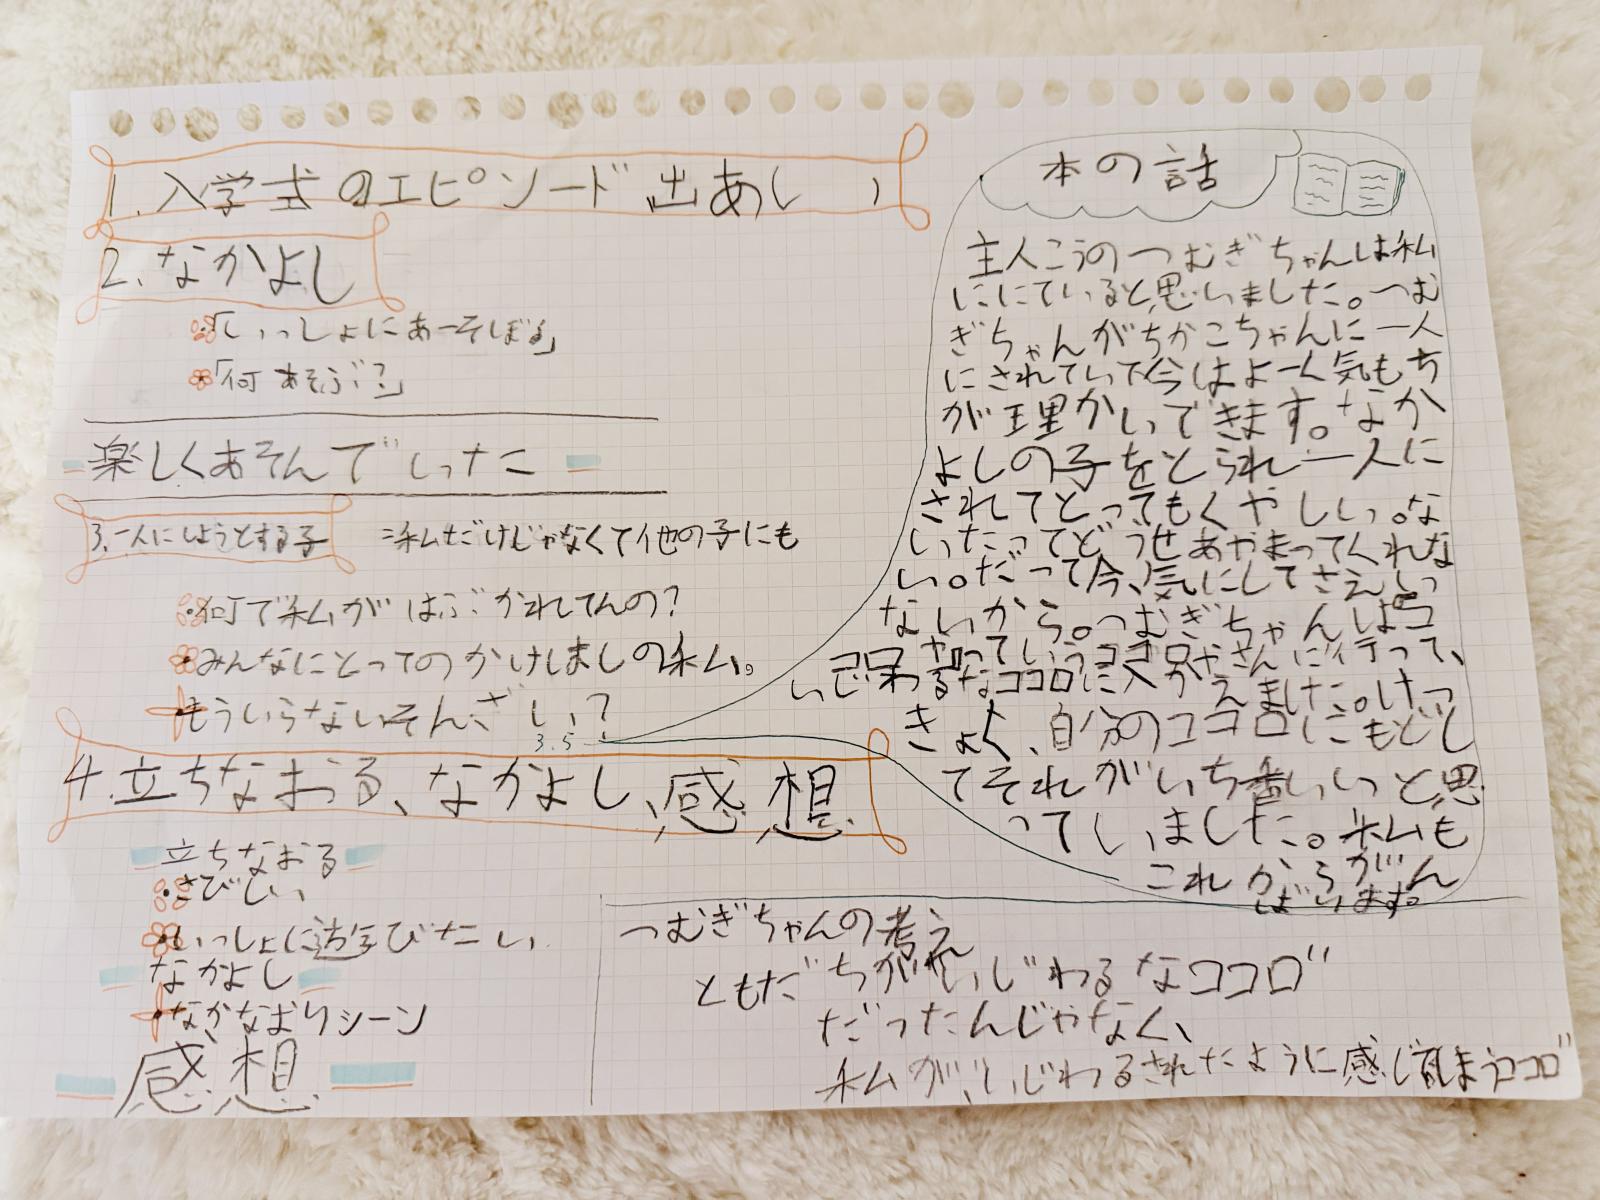 1.入学式のエピソード出あい
2、なかよし
・「いっしょにあーそぼう」
・「何あそぶ?」
楽しくあそんでいった
3.一人にしようとする子
私だけじゃなくて他の子にも
・何で私がはぶかれてんの?
・みんなにとってのかけしましの私。
・もういらないそんざい?
3.5
4.立ちなおる、なかよし、感想
立ちなおる
・さびしい
・いっしょに遊びたい
なかよし
・なかなおりシーン
感想
本の話
主人こうのつむぎちゃんは私
ににていると思いました。つむ
ぎちゃんがちかこちゃんに一人
にされていて今はよーく気もち
が理かいできます。なか
よしの子をとられ一人に
されてとってもくやしい。な
いたってどうせあやまってくれな
い。だって今、気にしてさえい
ないから。つむぎちゃんはココ
ロやっていうココロやさんに行って、
いじわるなココロに入かえました。けっ
きょく、自分のココロにもどし
てそれがいち番いいと思
っていました。私も
これからがん
ばります。
つむぎちゃんの考え
ともだちがいじわるなココロ"
だったんじゃなく、
私が、いじわるされたように感じてしまうココロ"